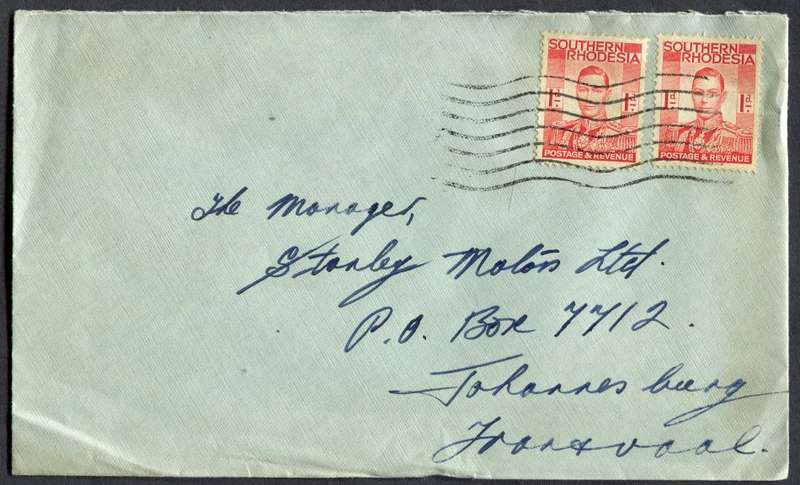 SOUTHERN RHODESIA
1d 1d
POSTAGE & REVENUE
SOUTHERN RHODESIA
1d 1d
POSTAGE & REVENUE
The Manager,
Stanley Motors Ltd.
P.O. Box 7712.
Johannesburg
Transvaal.